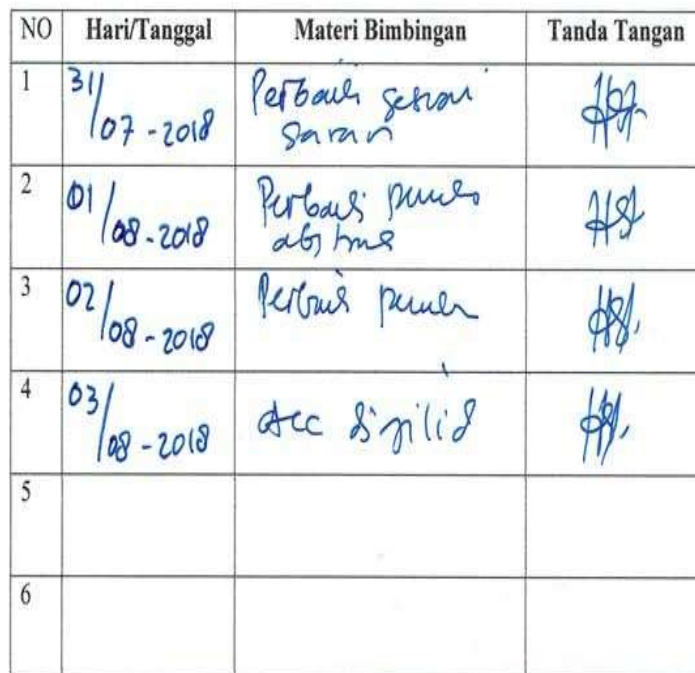 NO Hari/Tanggal Materi Bimbingan Tanda Tangan
1 31/07-2018 Perbaiki sesuai
saran
2 01/08-2018 Perbaiki
3 02/08-2018 Perbaiki
4 03/08-2018 Acc dijilid
5
6